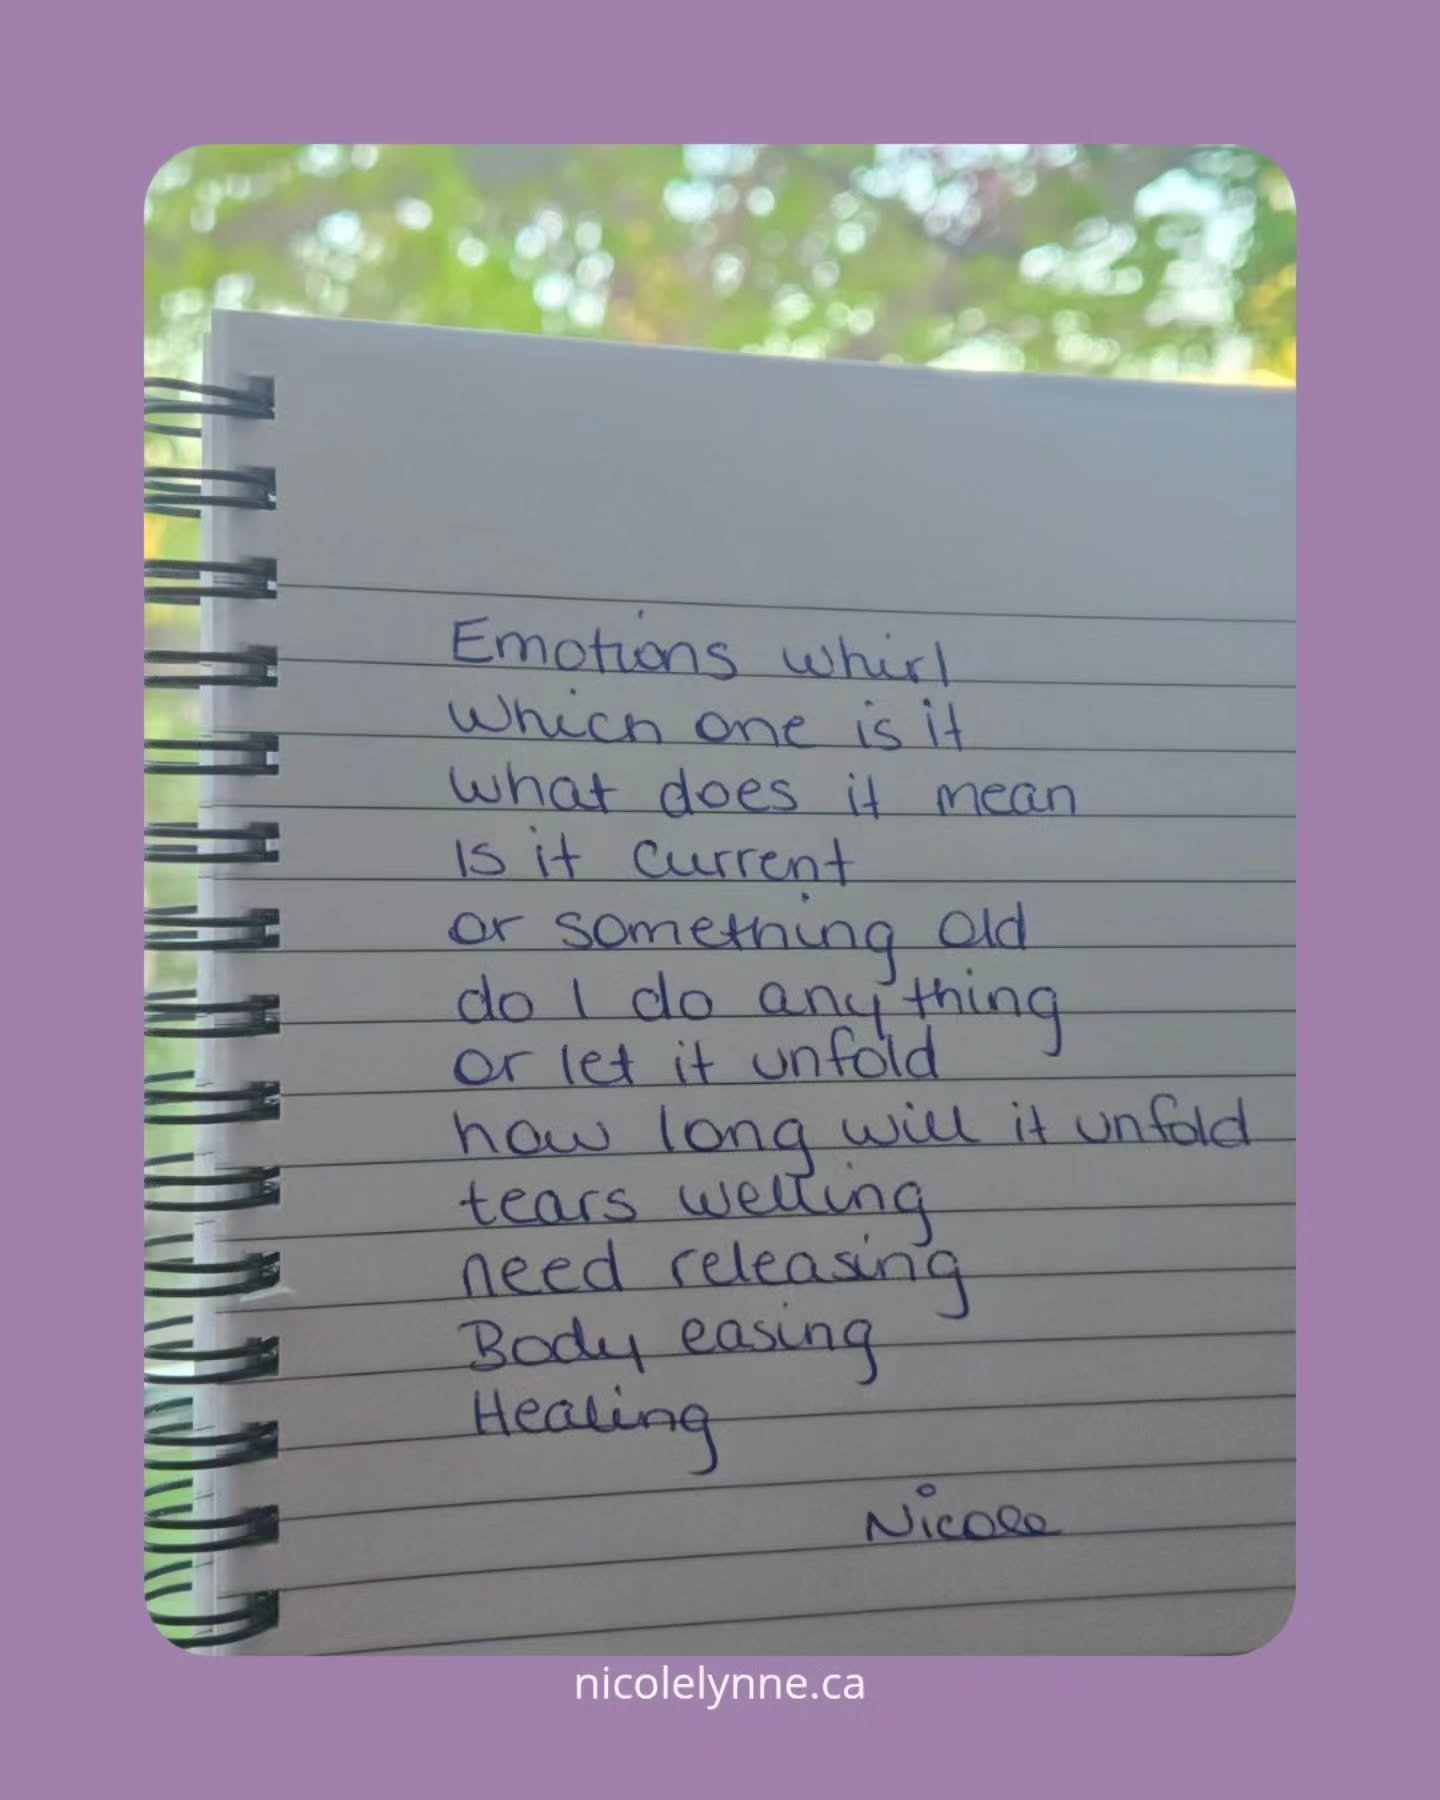 Emotions whirl
Which one is it
what does it mean
Is it current
or something old
do I do anything
or let it unfold
how long will it unfold
tears welling
need releasing
Body easing
Healing
Nicole
nicolelynne.ca